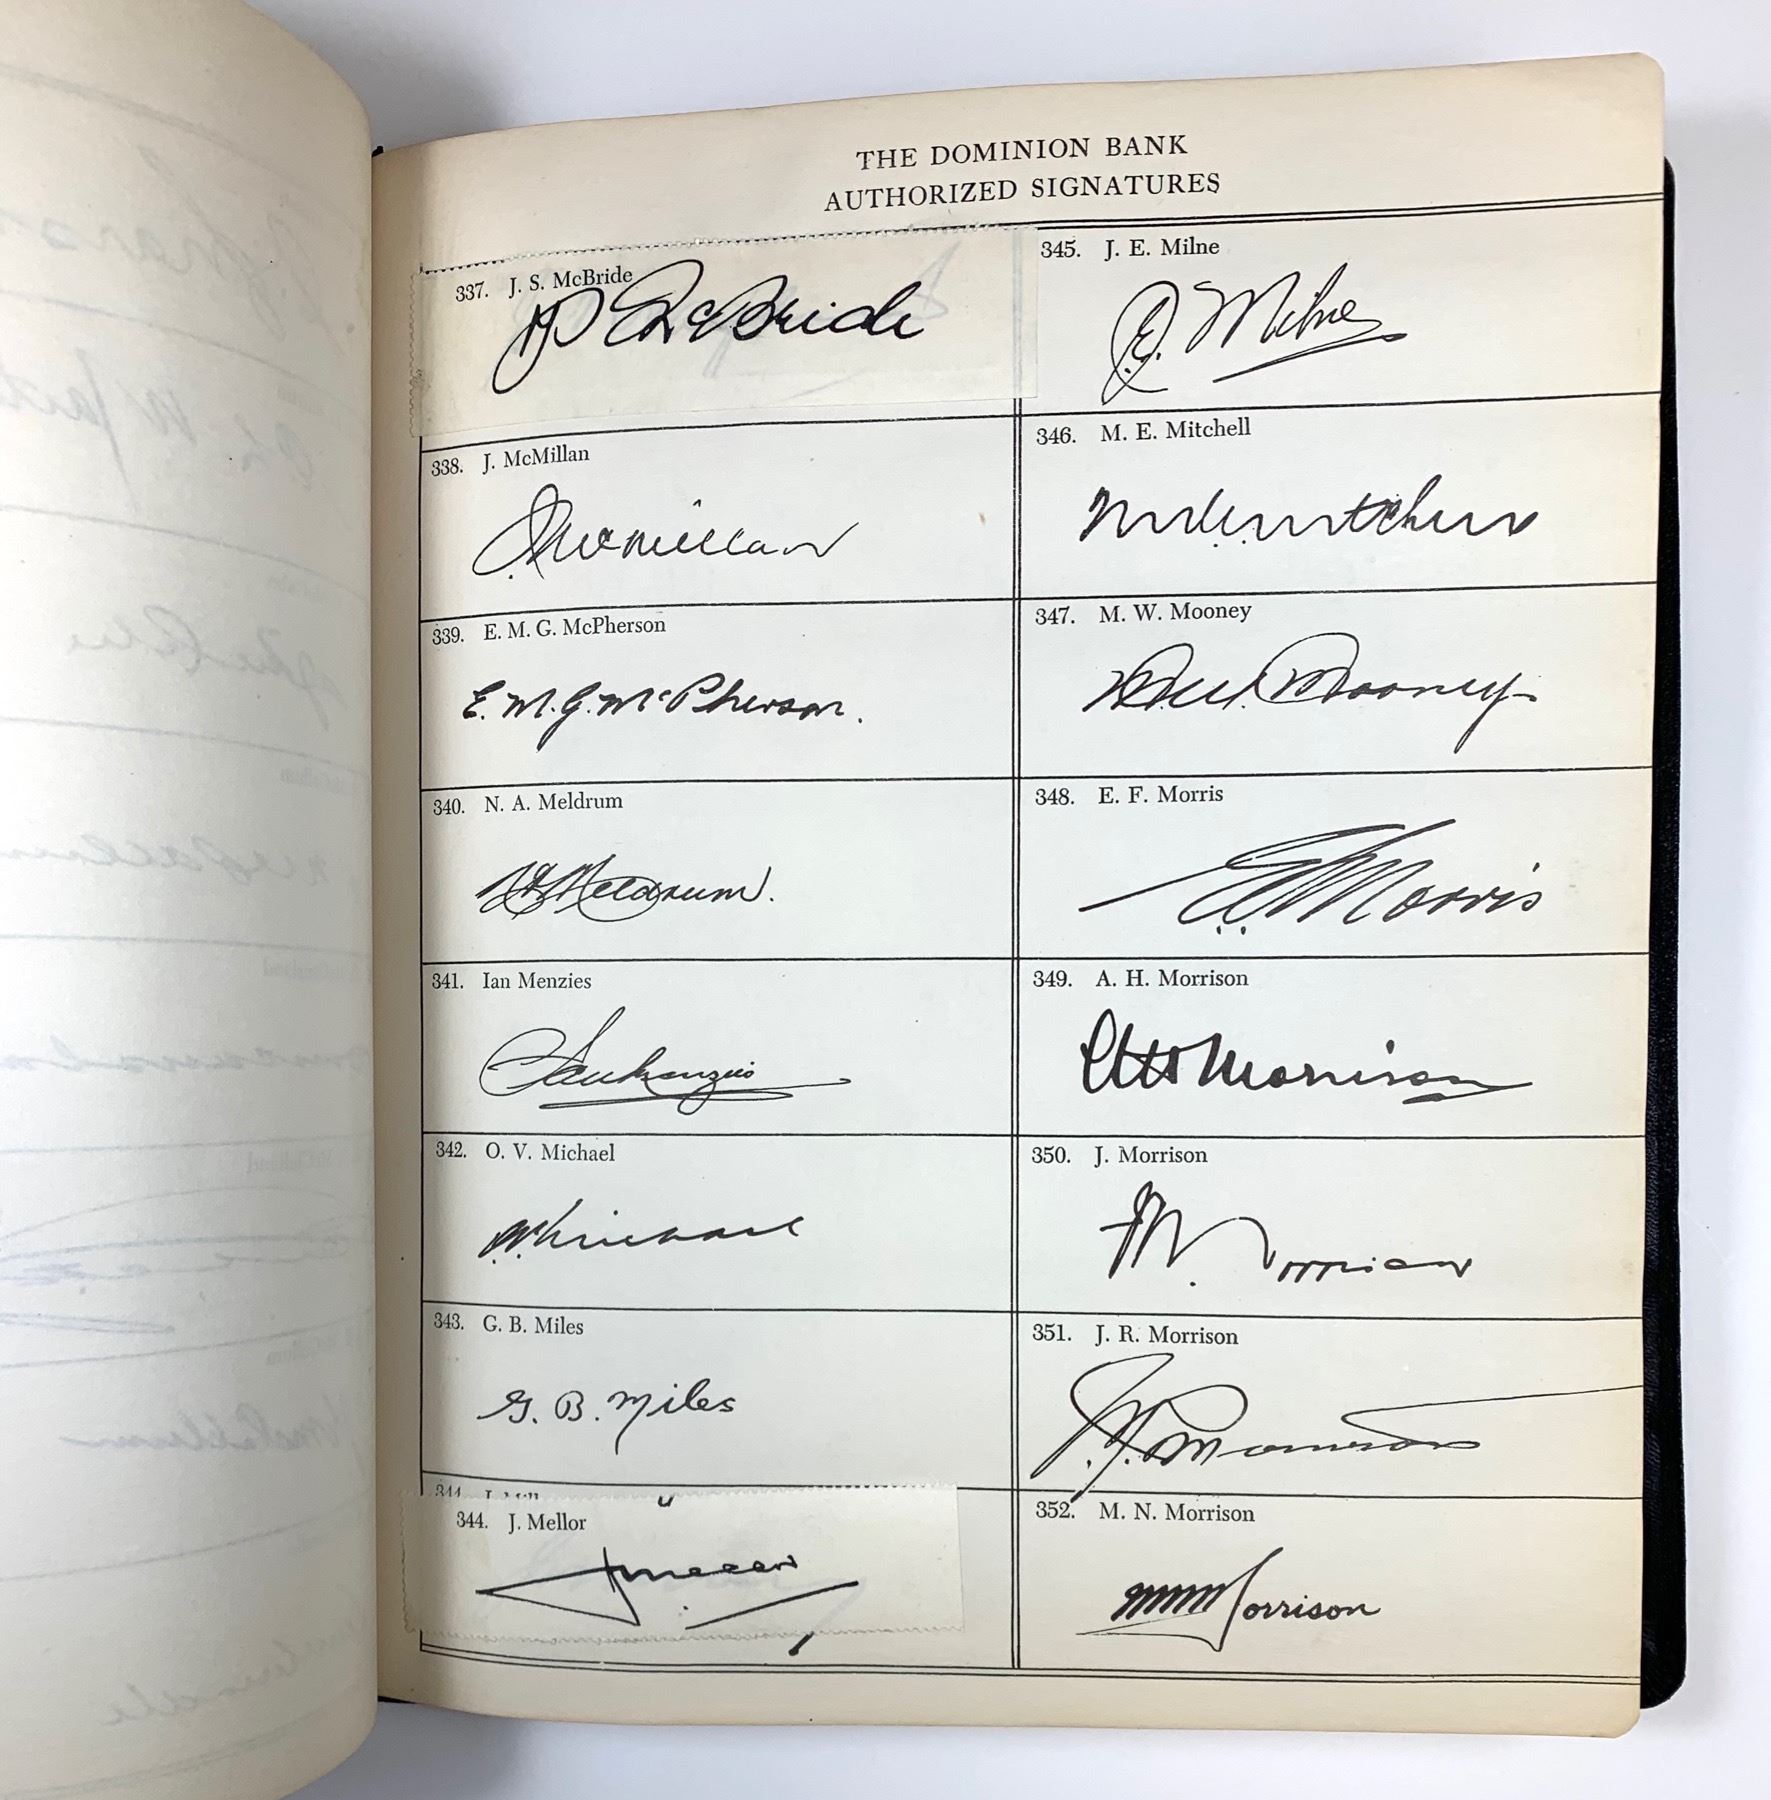 THE DOMINION BANK
AUTHORIZED SIGNATURES
337. J. S. McBride
McBride
338. J. McMillan
J McMillan
339. E. M. G. McPherson
E. M. G. McPherson.
340. N. A. Meldrum
N A Meldrum.
341. Ian Menzies
Ian Menzies
342. O. V. Michael
O. V. Michael
343. G. B. Miles
G. B. Miles
344.
344. J. Mellor
J Mellor
345. J. E. Milne
J. E. Milne
346. M. E. Mitchell
M. E. Mitchell
347. M. W. Mooney
M. W. Mooney
348. E. F. Morris
E. F. Morris
349. A. H. Morrison
A H Morrison
350. J. Morrison
J. Morrison
351. J. R. Morrison
J. R. Morrison
352. M. N. Morrison
M N Morrison